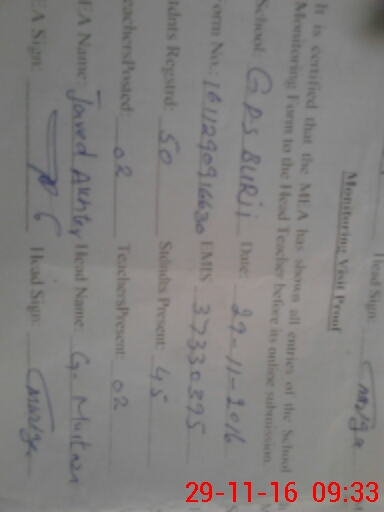 Head Sign:
Monitoring Visit Proof
It is certified that the MEA has shown all entries of the School
Monitoring Form to the Head Teacher before its online submission.
School: GPS BURJI Date: 29-11-2016
Form No.: 1611290916630 EMIS 37330395
Stdnts Regstrd: 50 Stdnts Present: 45
TeachersPosted: 02 TeachersPresent: 02
MEA Name: Javed Akhter Head Name: G. Murtaza
MEA Sign: Head Sign:
29-11-16 09:33